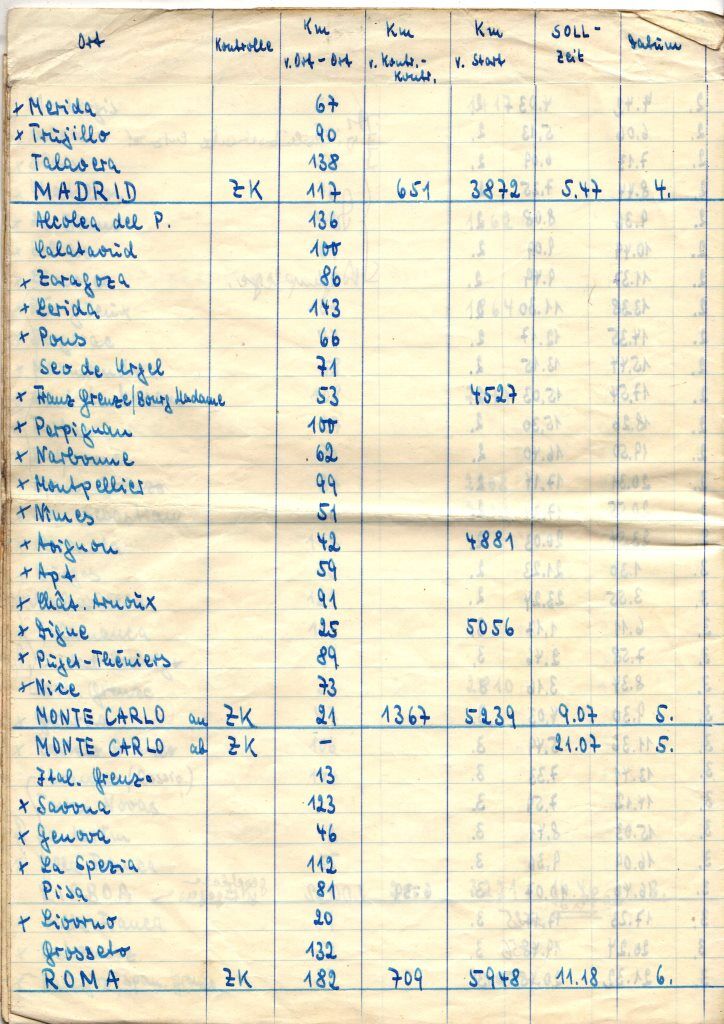 Ort Kontrolle Km v. Ort - Ort Km v. Kontr.- Kontr. Km v. Start SOLL- Zeit Datum
x Merida 67
x Trujillo 90
Talavera 138
MADRID ZK 117 651 3872 5.47 4.
Alcolea del P. 136
Calatayud 100
x Zaragoza 86
x Lerida 143
x Pons 66
Seo de Urgel 71
x Franz Grenze/Bourg Madame 53 4527
x Perpignan 100
x Narbonne 62
x Montpellier 99
x Nimes 51
x Avignon 42 4881
x Apt 59
x Chât. Arnoux 91
x Digne 25 5056
x Puget-Théniers 89
x Nice 73
MONTE CARLO an ZK 21 1367 5239 9.07 5.
MONTE CARLO ab ZK - 21.07 5.
Ital. Grenze 13
x Savona 123
x Genova 46
x La Spezia 112
Pisa 81
x Livorno 20
Grosseto 132
ROMA ZK 182 709 5948 11.18 6.